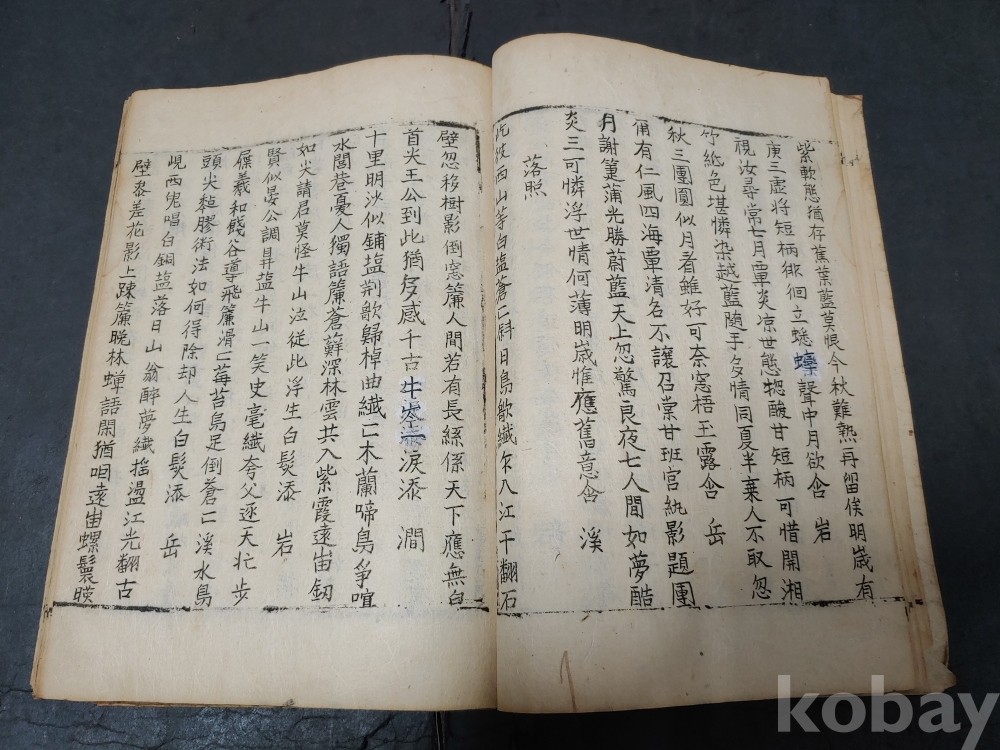 紫軟態猶存蕉葉藍莫恨今秋難熱再留俟明歲有
庚三虛將短柄徘徊立蟋蟀聲中月欲含 岩
視汝尋常七月覃炎凉世態惣酸甘短柄可惜開湘
竹紈色堪憐染越藍隨手多情同夏半棄人不取忽
秋三團圓似月看雖好可奈窓梧玉露含 岳
甭有仁風四海覃清名不讓召棠甘班宮紈影題團
月謝篁蒲光勝蔚藍天上忽驚良夜七人間如夢酷
炎三可憐浮世情何薄明歲惟應舊意含 溪
落照
西山等白塩蒼〻斜日鳥歇纖尓入江干翻石
壁忽移樹影倒窓簾人間若有長絲係天下應無白
首尖王公到此猶多感千古牛岺淚添 澗
十里明沙似鋪塩荆歌歸棹曲纖〻木蘭啼鳥爭喧
水閭巷憂人獨語簾蒼蘚深林雲共入紫霞遠岫釰
如尖請君莫怪牛山泣從此浮生白髮添 岩
賢似晏公調鼎塩牛山一笑史毫纖夸父逐天忙步
屧羲和餞谷導飛簾滑〻莓苔鳥足倒蒼〻溪水鳥
頭尖黏膠術法如何得除却人生白髮添 岳
峴西鬼唱白銅塩落日山翁醉夢纖搖盪江光翻古
壁參差花影上踈簾晚林蟬語閑猶咽遠岫螺鬟暎
kobay